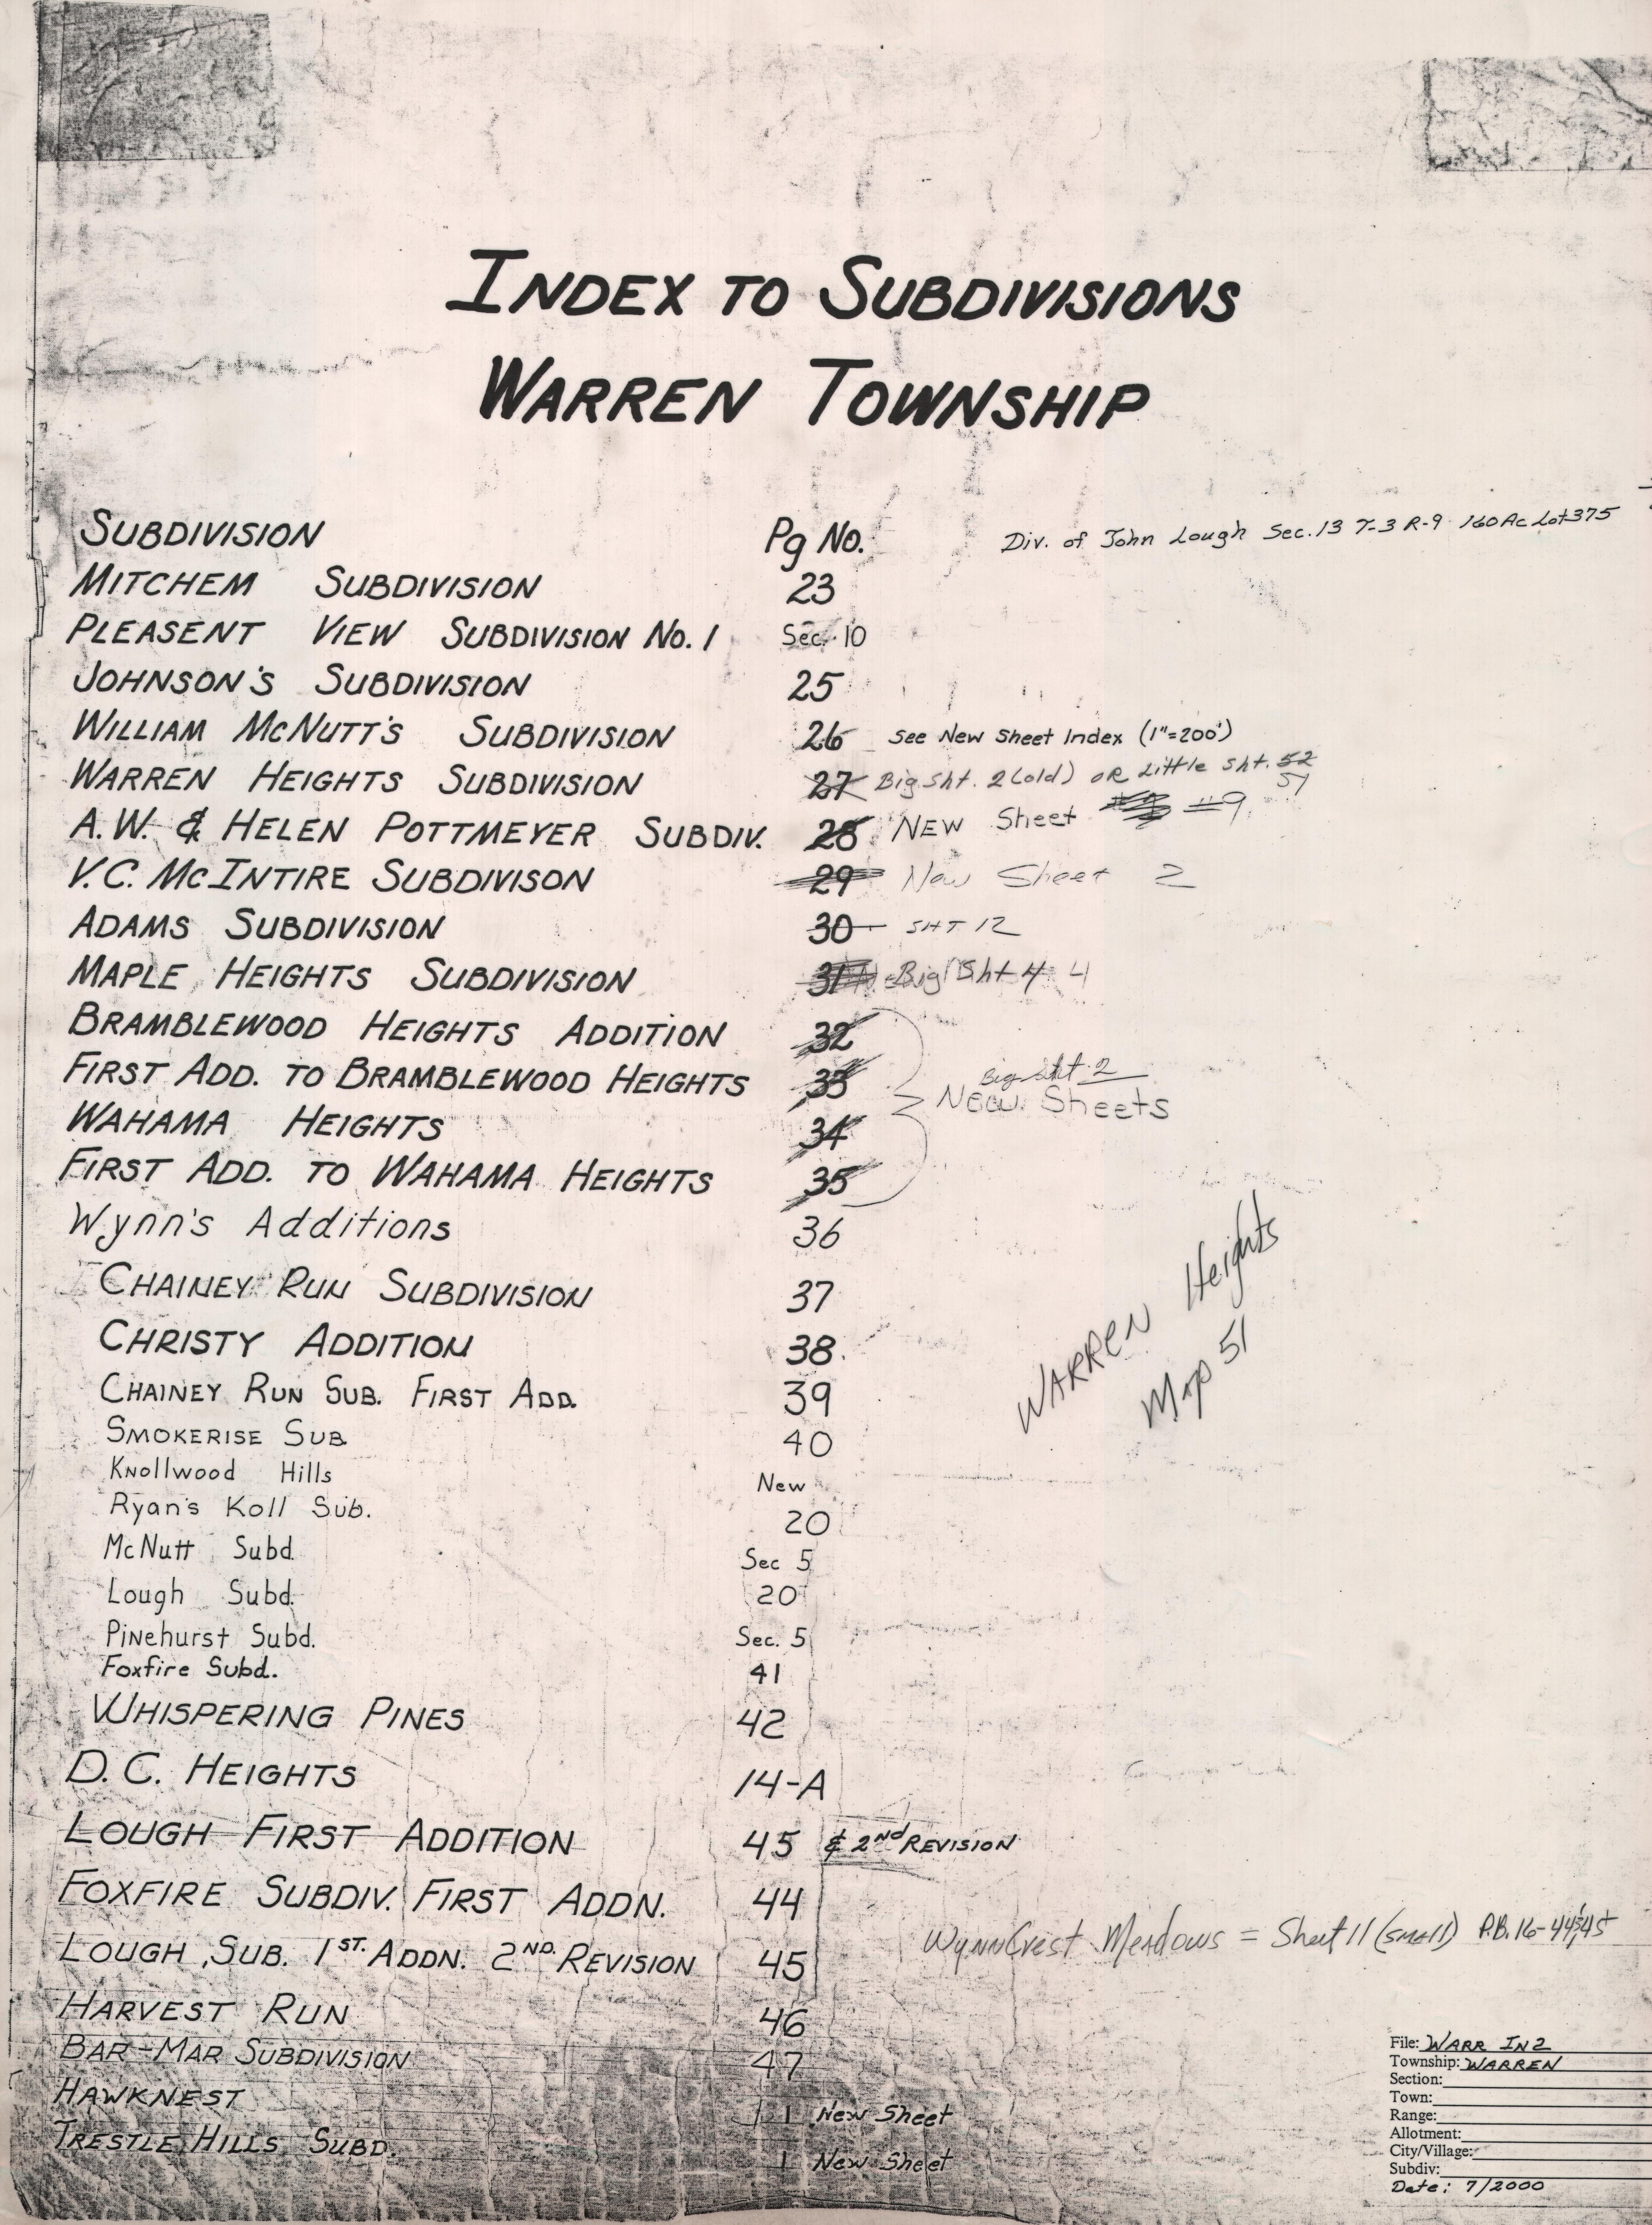 INDEX TO SUBDIVISIONS
WARREN TOWNSHIP
SUBDIVISION Pg No. Div. of John Lough Sec. 13 T-3 R-9 160 Ac Lot 375
MITCHEM SUBDIVISION 23
PLEASENT VIEW SUBDIVISION No. 1 Sec. 10
JOHNSON'S SUBDIVISION 25
WILLIAM McNUTT'S SUBDIVISION 26 See New Sheet Index (1"=200')
WARREN HEIGHTS SUBDIVISION 27 Big Sht. 2 (old) OR Little Sht. 52
51
A.W. & HELEN POTTMEYER SUBDIV. 28 NEW Sheet #9
V.C. McINTIRE SUBDIVISON 29 New Sheet 2
ADAMS SUBDIVISION 30 SHT 12
MAPLE HEIGHTS SUBDIVISION 31 Big Sht 4 4
BRAMBLEWOOD HEIGHTS ADDITION 32
FIRST ADD. TO BRAMBLEWOOD HEIGHTS 33 Big Sht. 2
New Sheets
WAHAMA HEIGHTS 34
FIRST ADD. TO WAHAMA HEIGHTS 35
Wynn's Additions 36
CHAINEY RUN SUBDIVISION 37
WARREN Heights
Map 51
CHRISTY ADDITION 38
CHAINEY RUN SUB. FIRST ADD. 39
SMOKERISE SUB. 40
Knollwood Hills New
Ryan's Koll Sub. 20
McNutt Subd. Sec 5
Lough Subd. 20
Pinehurst Subd. Sec. 5
Foxfire Subd. 41
WHISPERING PINES 42
D.C. HEIGHTS 14-A
LOUGH FIRST ADDITION 45 & 2ND REVISION
FOXFIRE SUBDIV. FIRST ADDN. 44
WynnCrest Meadows = Sheet 11 (small) P.B. 16-44&45
LOUGH SUB. 1ST. ADDN. 2ND. REVISION 45
HARVEST RUN 46
BAR-MAR SUBDIVISION 47
HAWKNEST 1 New Sheet
TRESTLE HILLS SUBD. 1 New Sheet
File: WARR IN2
Township: WARREN
Section:
Town:
Range:
Allotment:
City/Village:
Subdiv:
Date: 7/2000